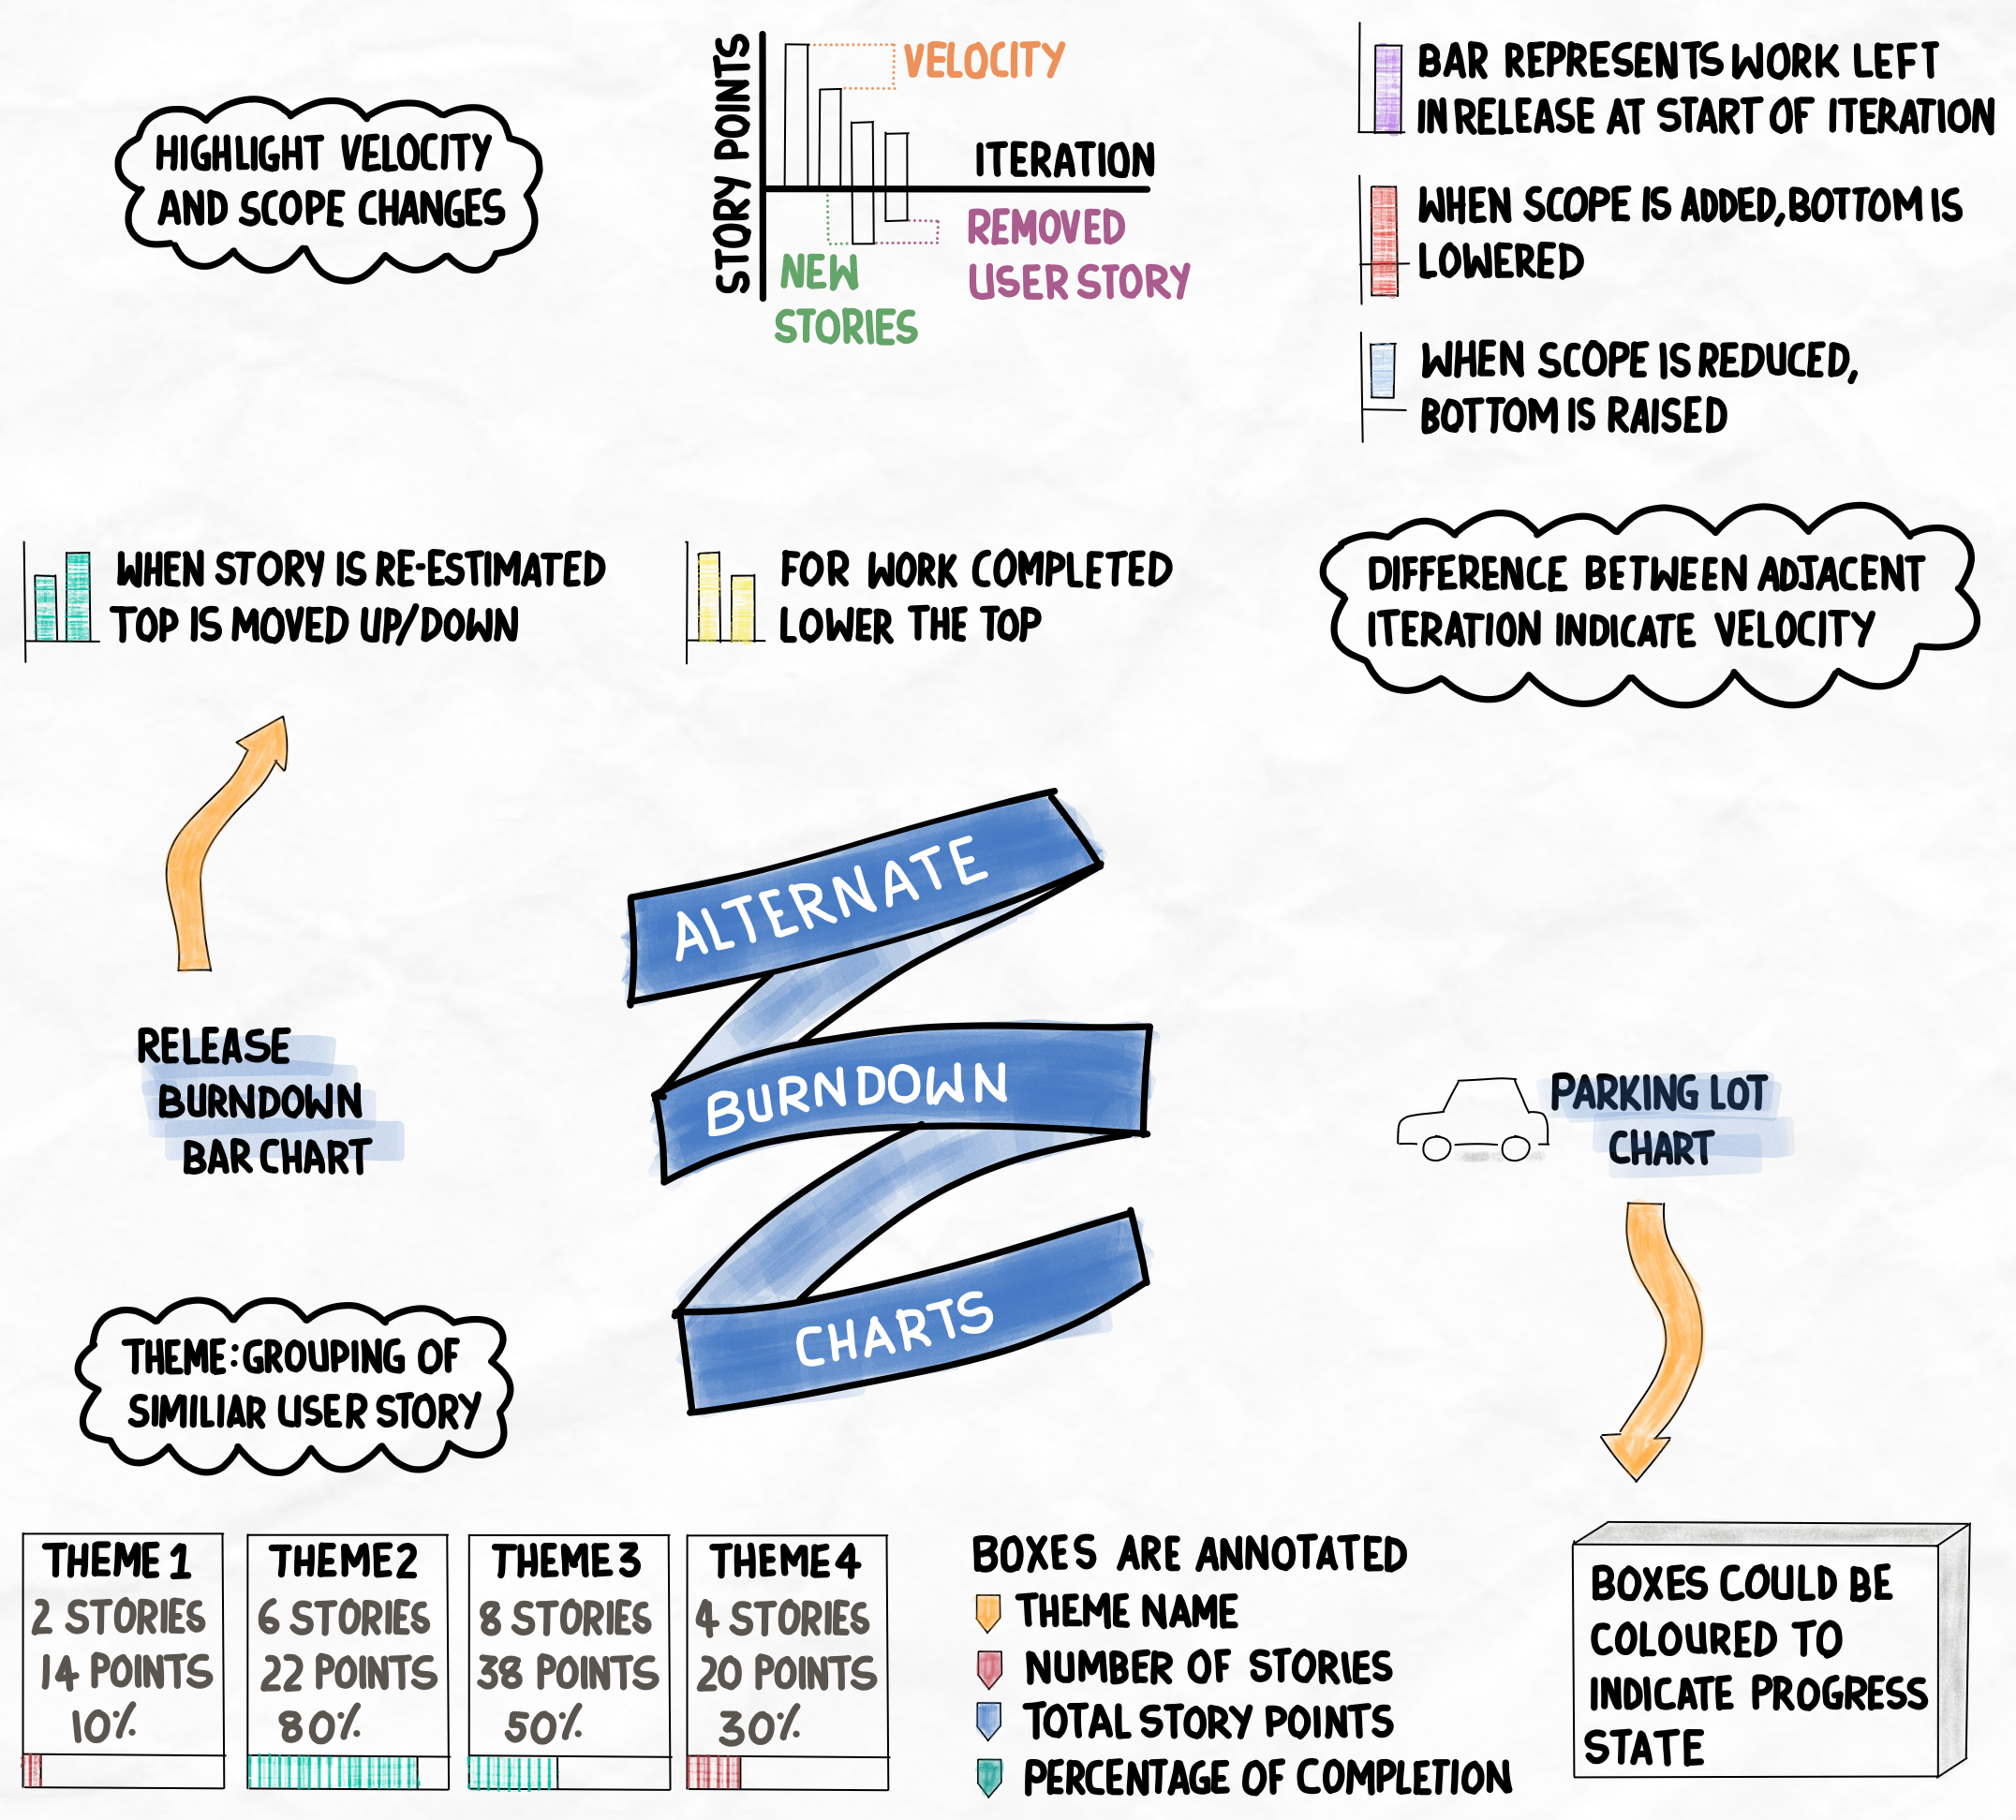 HIGHLIGHT VELOCITY
AND SCOPE CHANGES
STORY POINTS
VELOCITY
ITERATION
REMOVED
USER STORY
NEW
STORIES
BAR REPRESENTS WORK LEFT
IN RELEASE AT START OF ITERATION
WHEN SCOPE IS ADDED, BOTTOM IS
LOWERED
WHEN SCOPE IS REDUCED,
BOTTOM IS RAISED
WHEN STORY IS RE-ESTIMATED
TOP IS MOVED UP/DOWN
FOR WORK COMPLETED
LOWER THE TOP
DIFFERENCE BETWEEN ADJACENT
ITERATION INDICATE VELOCITY
ALTERNATE
BURNDOWN
CHARTS
RELEASE
BURNDOWN
BAR CHART
PARKING LOT
CHART
THEME: GROUPING OF
SIMILIAR USER STORY
THEME 1
2 STORIES
14 POINTS
10%
THEME 2
6 STORIES
22 POINTS
80%
THEME 3
8 STORIES
38 POINTS
50%
THEME 4
4 STORIES
20 POINTS
30%
BOXES ARE ANNOTATED
THEME NAME
NUMBER OF STORIES
TOTAL STORY POINTS
PERCENTAGE OF COMPLETION
BOXES COULD BE
COLOURED TO
INDICATE PROGRESS
STATE